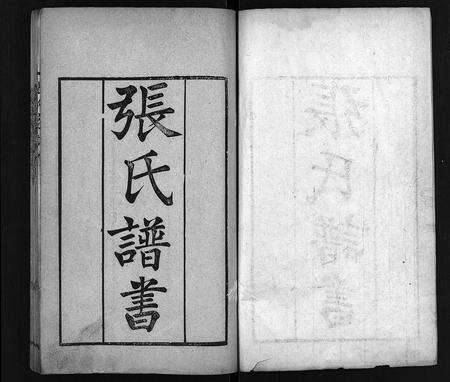 張氏譜書